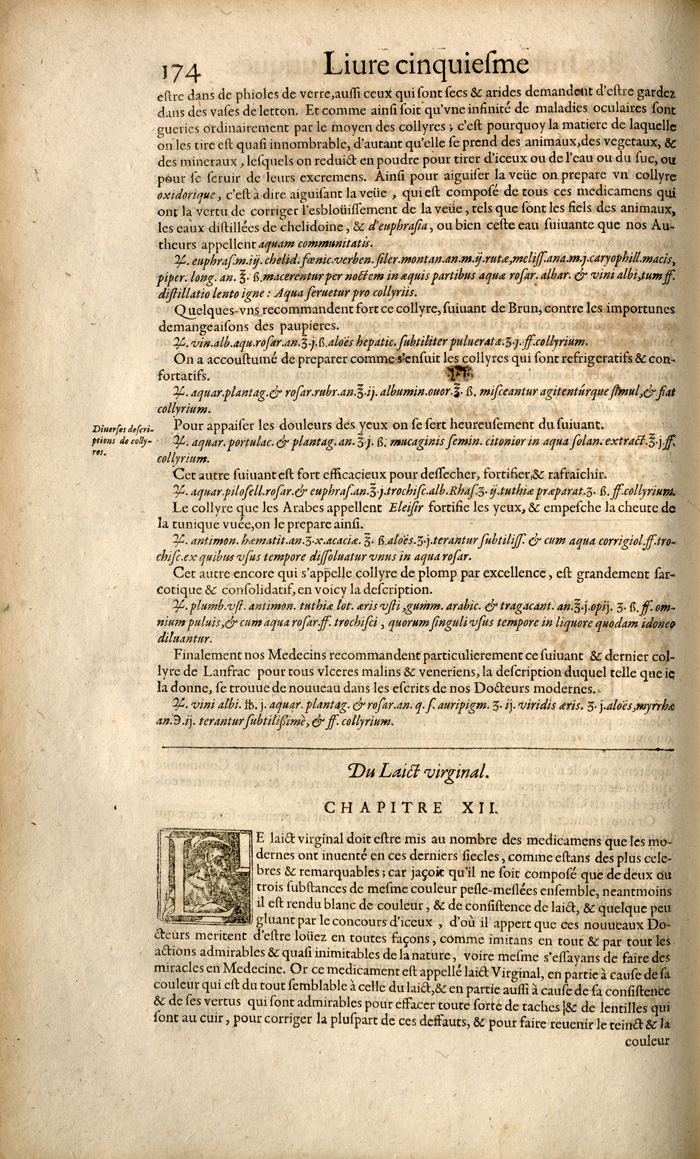 174 Liure cinquiesme
estre dans de phioles de verre,aussi ceux qui sont secs & arides demandent d'estre gardez
dans des vases de letton. Et comme ainsi soit qu'vne infinité de maladies oculaires sont
gueries ordinairement par le moyen des collyres ; c'est pourquoy la matiere de laquelle
on les tire est quasi innombrable, d'autant qu'elle se prend des animaux,des vegetaux, &
des mineraux, lesquels on reduict en poudre pour tirer d'iceux ou de l'eau ou du suc, ou
pour se seruir de leurs excremens. Ainsi pour aiguiser la veüe on prepare vn collyre
oxidorique, c'est à dire aiguisant la veüe , qui est composé de tous ces medicamens qui
ont la vertu de corriger l'esbloüissement de la veüe, tels que sont les fiels des animaux,
les eaux distillées de chelidoine, & d'euphrasia, ou bien ceste eau suiuante que nos Au-
theurs appellent aquam communitatis.
♃. euphras.m.iij. chelid. fœnic.verben. siler.montan.an.m.ij.rutæ,meliss.ana.m.j.caryophill.macis,
piper. long. an. ʒ. ß.macerentur per noctem in æquis partibus aquæ rosar. albar. & vini albi,tum ff.
distillatio lento igne : Aqua seruetur pro collyriis.
Quelques-vns recommandent fort ce collyre,suiuant de Brun, contre les importunes
demangeaisons des paupieres.
♃. vin.alb.aqu.rosar.an.℥.j.ß.aloës hepatic. subtiliter pulueratæ.ʒ.j.ff.collyrium.
On a accoustumé de preparer comme s'ensuit les collyres qui sont refrigeratifs & con-
fortatifs.
♃. aquar.plantag.& rosar.rubr.an.℥.ij. albumin.ouor.℥. ß. misceantur agitentúrque simul,& fiat
collyrium.
Pour appaiser les douleurs des yeux on se sert heureusement du suiuant.
Diuerses descri-
ptions de colly-
res.
♃. aquar. portulac. & plantag. an. ℥.j. ß. mucaginis semin. citonior in aqua solan. extract.℥.j.ff.
collyrium.
Cet autre suiuant est fort efficacieux pour dessecher, fortifier,& rafraichir.
♃. aquar.pilosell.rosar.& euphras.an.℥.j.trochisc.alb.Rhas.ʒ. ij.tuthiæ præparat.ʒ. ß. ff.collyrium.
Le collyre que les Arabes appellent Eleisir fortifie les yeux, & empesche la cheute de
la tunique vuée,on le prepare ainsi.
♃. antimon. hæmatit.an.ʒ.x.acaciæ. ʒ. ß.aloës.ʒ.j.terantur subtiliss. & cum aqua corrigiol.ff.tro-
chisc.ex quibus vsus tempore dissoluatur vnus in aqua rosar.
Cet autre encore qui s'appelle collyre de plomp par excellence, est grandement sar-
cotique & consolidatif, en voicy la description.
♃. plumb.vst. antimon. tuthiæ lot. æris vsti ,gumm. arabic. & tragacant. an.℥.j.opij. ʒ. ß. ff. om-
nium puluis,& cum aqua rosar.ff. trochisci , quorum singuli vsus tempore in liquore quodam idoneo
diluantur.
Finalement nos Medecins recommandent particulierement ce suiuant & dernier col-
lyre de Lanfrac pour tous vlceres malins & veneriens, la description duquel telle que ie
la donne, se trouue de nouueau dans les escrits de nos Docteurs modernes.
♃. vini albi. ℔. j. aquar. plantag. & rosar.an. q. s. auripigm. ʒ. ij. viridis æris. ʒ. j.aloës,myrrhæ
an.℈.ij. terantur subtilissimè, & ff. collyrium.
Du Laict virginal.
CHAPITRE XII.
LE laict virginal doit estre mis au nombre des medicamens que les mo-
dernes ont inuenté en ces derniers siecles, comme estans des plus cele-
bres & remarquables ; car jaçoit qu'il ne soit composé que de deux ou
trois substances de mesme couleur pesle-meslées ensemble, neantmoins
il est rendu blanc de couleur , & de consistence de laict, & quelque peu
gluant par le concours d'iceux , d'où il appert que ces nouueaux Do-
cteurs meritent d'estre loüez en toutes façons, comme imitans en tout & par tout les
actions admirables & quasi inimitables de la nature , voire mesme s'essayans de faire des
miracles en Medecine. Or ce medicament est appellé laict Virginal, en partie à cause de sa
couleur qui est du tout semblable à celle du laict,& en partie aussi à cause de sa consistence
& de ses vertus qui sont admirables pour effacer toute sorte de taches & de lentilles qui
sont au cuir , pour corriger la pluspart de ces deffauts, & pour faire reuenir le teinct & la
couleur